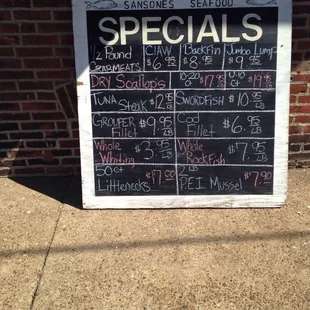 SANSONES SEAFOOD
SPECIALS
1/2 Pound CLAW Backfin Jumbo Lump
CRABMEATS $6.95 $8.95 $9.95
DRY Scallops $17.95 $19.95
TUNA Steak $12.95 LB SWORDFISH $10.95 LB
GROUPER Fillet $9.95 LB Cod Fillet $6.95 LB
Whole Whiting $3.95 LB Whole Rockfish $7.95 LB
50 CT Littlenecks $17.00 2 LB PEI Mussel $7.90